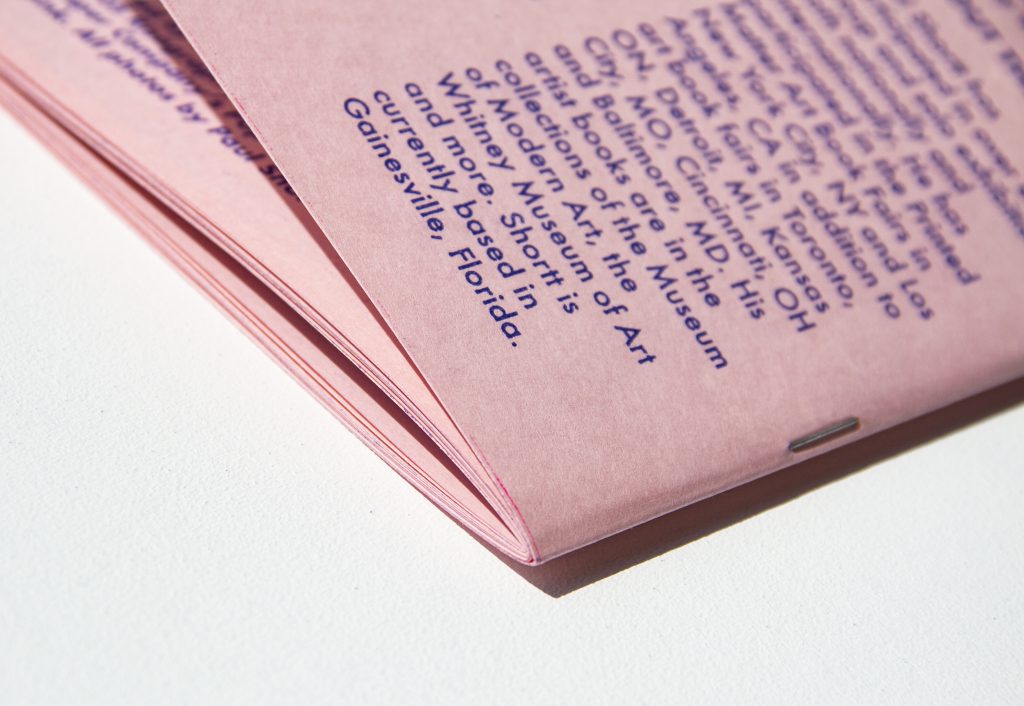 Company
All photos by Paul
Shortt has
in over
solo
nationally and
internationally. He has
participated in the Printed
Matter Art Book Fairs in
New York City, NY and Los
Angeles, CA in addition to
art book fairs in Toronto,
ON, Detroit, MI, Kansas
City, MO, Cincinnati, OH
and Baltimore, MD. His
artist books are in the
collections of the Museum
of Modern Art, the
Whitney Museum of Art
and more. Shortt is
currently based in
Gainesville, Florida.